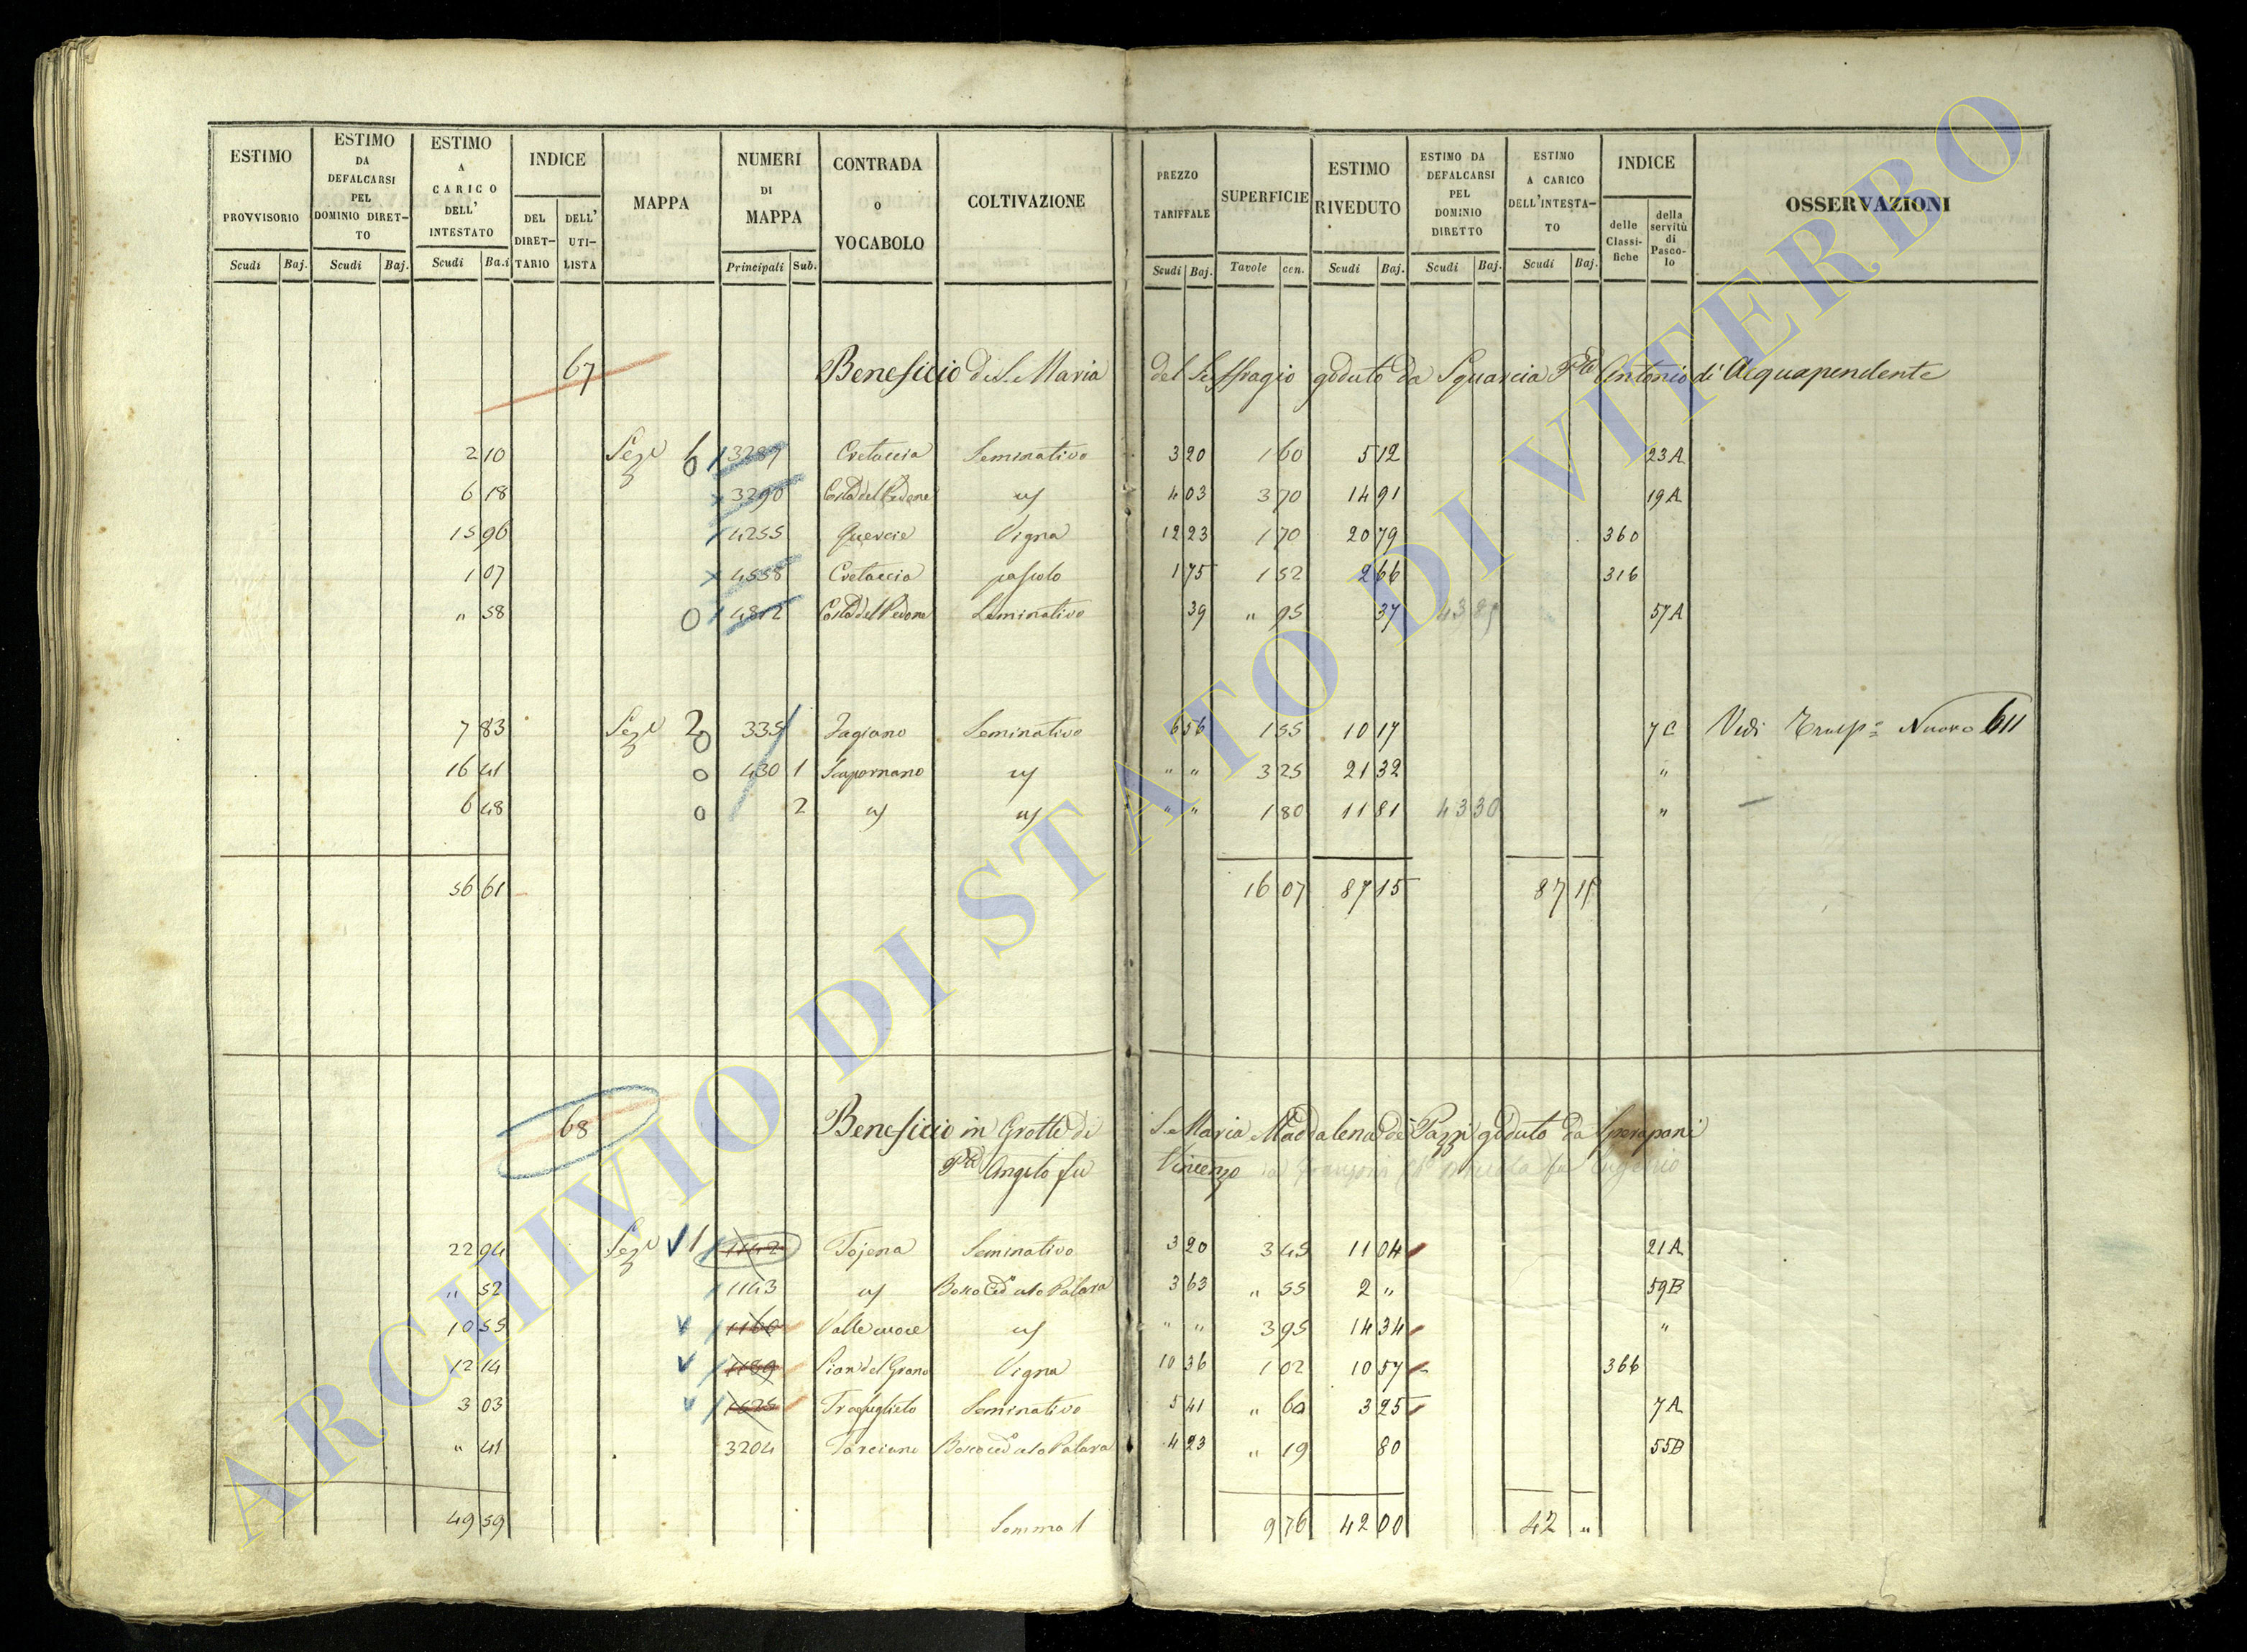 ESTIMO PROVVISORIO | ESTIMO DA DEFALCARSI PEL DOMINIO DIRETTO | ESTIMO A CARICO DELL' INTESTATO | INDICE | MAPPA | NUMERI DI MAPPA | CONTRADA o VOCABOLO | COLTIVAZIONE | PREZZO TARIFFALE | SUPERFICIE | ESTIMO RIVEDUTO | ESTIMO DA DEFALCARSI PEL DOMINIO DIRETTO | ESTIMO A CARICO DELL'INTESTATO | INDICE | OSSERVAZIONI
Scudi Baj. | Scudi Baj. | Scudi Baj. | DEL DIRETTARIO | DELL' UTILISTA | Principali Sub. | Scudi Baj. | Tavole cen. | Scudi Baj. | Scudi Baj. | Scudi Baj. | delle Classifiche | della servitù di Pascolo
67 Beneficio di S. Maria del Suffragio goduto da Squarcia Antonio di Acquapendente
2 10 Sez 1 3287 Cretaccia Seminativo 3 20 1 60 5 12 23A
6 18 3290 Costa del Pedone 4 03 3 70 14 91 19A
15 96 4255 Quercie Vigna 12 23 1 70 20 79 360
1 07 4558 Cretaccia pascolo 1 75 1 52 2 66 316
" 58 4812 Costa del Pedone Seminativo 39 " 95 37 43 85 57A
7 83 Sez 2 335 Jagiano Seminativo 6 56 1 55 10 17 7C Vedi Nuovo 611
16 41 430 1 Seapornano " " 3 25 21 32 "
6 48 2 " " 1 80 11 81 43 30 "
56 61 16 07 87 15 87 15
68 Beneficio in Grotte di S. Maria Maddalena de Pazzi goduto da Sperapani
Angelo fu Vincenzo
22 94 Sez 1 1142 Tojena Seminativo 3 20 3 45 11 04 21A
" 52 1143 Bosco Ced uto Palara 3 63 " 55 2 " 59B
10 55 1160 Valle " " 3 95 14 34 "
12 14 1189 Pian del Grano Vigna 10 36 1 02 10 57 366
3 03 1625 Seminativo 5 41 " 60 3 25 7A
" 41 3204 Torciano Bosco ced uto Palara 4 23 " 19 80 55B
49 59 Somma 1 9 76 42 00 42 "
ARCHIVIO DI STATO DI VITERBO